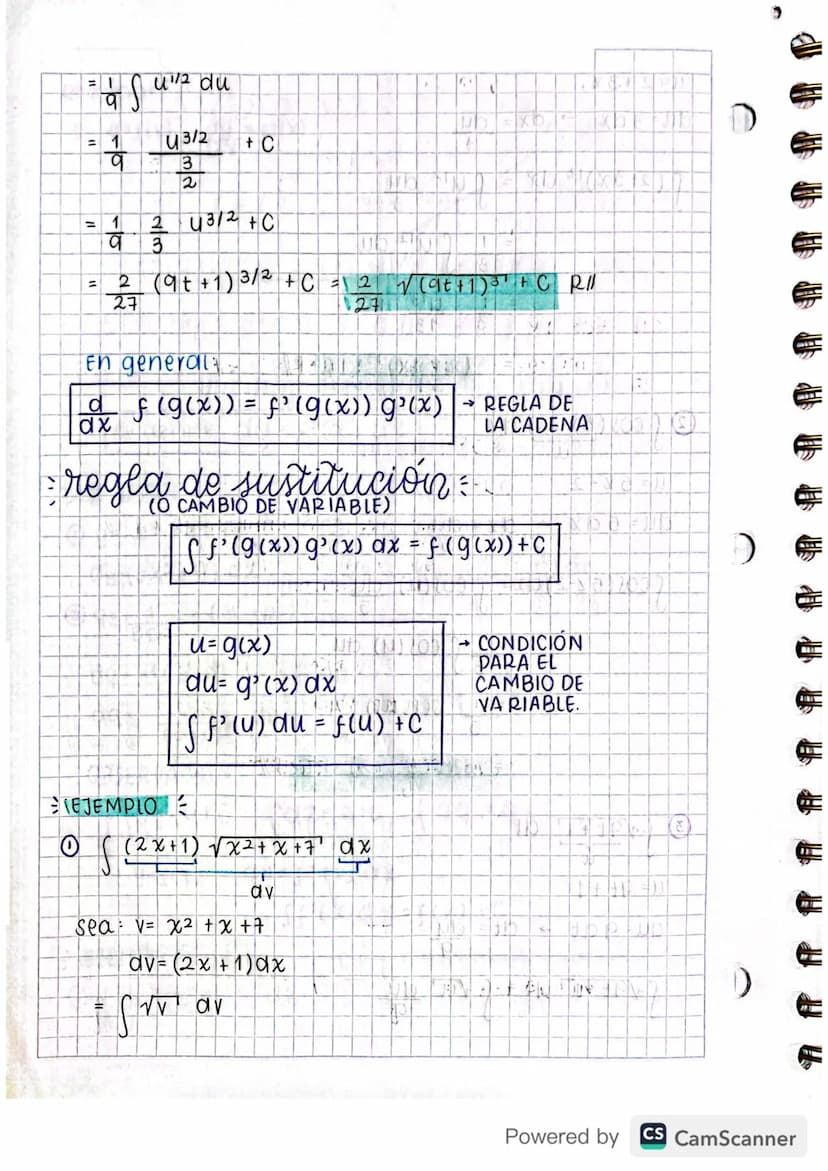 = 1/9 ∫ u^1/2 du
= 1/9 u^3/2 / 3/2 + C
= 1/9 · 2/3 u^3/2 + C
= 2/27 (9t+1)^3/2 + C = 2/27 √(9t+1)^3 + C R//
En general:
d/dx f(g(x)) = f'(g(x)) g'(x) → REGLA DE
LA CADENA
regla de sustitución
(O CAMBIO DE VARIABLE)
∫ f'(g(x)) g'(x) dx = f(g(x)) + C
u = g(x) → CONDICIÓN
PARA EL
du = g'(x) dx CAMBIO DE
VARIABLE.
∫ f'(u) du = f(u) + C
EJEMPLO
① ∫ (2x+1) √x²+x+7 dx
dv
sea: v = x² + x + 7
dv = (2x+1)dx
= ∫ √v dv
Powered by CS CamScanner